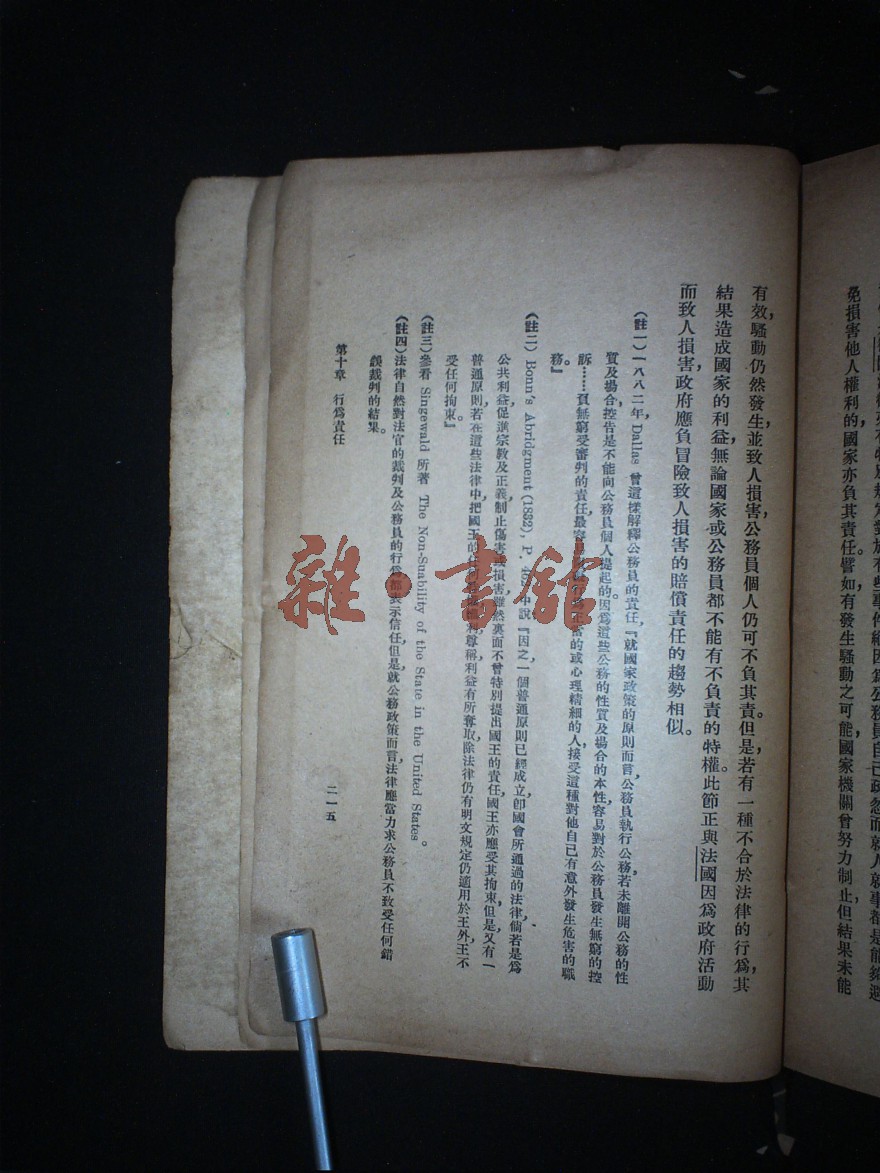 免損害他人權利的國家亦負其責任。譬如有發生騷動之可能，國家機關曾努力制止但結果未能
有效，騷動仍然發生，並致人損害，公務員個人仍可不負其責。但是，若有一種不合於法律的行爲，其
結果造成國家的利益，無論國家或公務員都不能有不負責的特權。此節正與法國因爲政府活動
而致人損害，政府應負冒險致人損害的賠償責任的趨勢相似。
(註一)一八八二年，Dallas 曾這樣解釋公務員的責任，『就國家政策的原則而言，公務員執行公務，若未離開公務的性
質及場合，控告是不能向公務員個人提起的。因爲這些公務的性質及場合的本性，容易對於公務員發生無窮的控
訴……負無窮受審判的責任，最容 的或心理精細的人，接受這種對他自己有意外發生危害的職
務。』
(註二) Bonn's Abridgment (1832), P. 中說『因之一個普通原則已經成立，卽國會所通過的法律，倘若是爲
公共利益，促進宗教及正義，制止傷害 損害，雖然裏面不曾特別提出國王的責任，國王亦應受其拘束，但是，又有一
普通原則，若在這些法律中，把國王的任何 尊稱利益有所奪取，除法律仍有明文規定仍適用於王外，王不
受任何拘束』
(註三)參看 Singewald 所著 The Non-Suability of the State in the United States。
(註四)法律自然對法官的裁判及公務員的行爲都表示信任，但是，就公務政策而言，法律應當力求公務員不致受任何錯
誤裁判的結果。
第十章 行爲責任
二一五
雜·書館